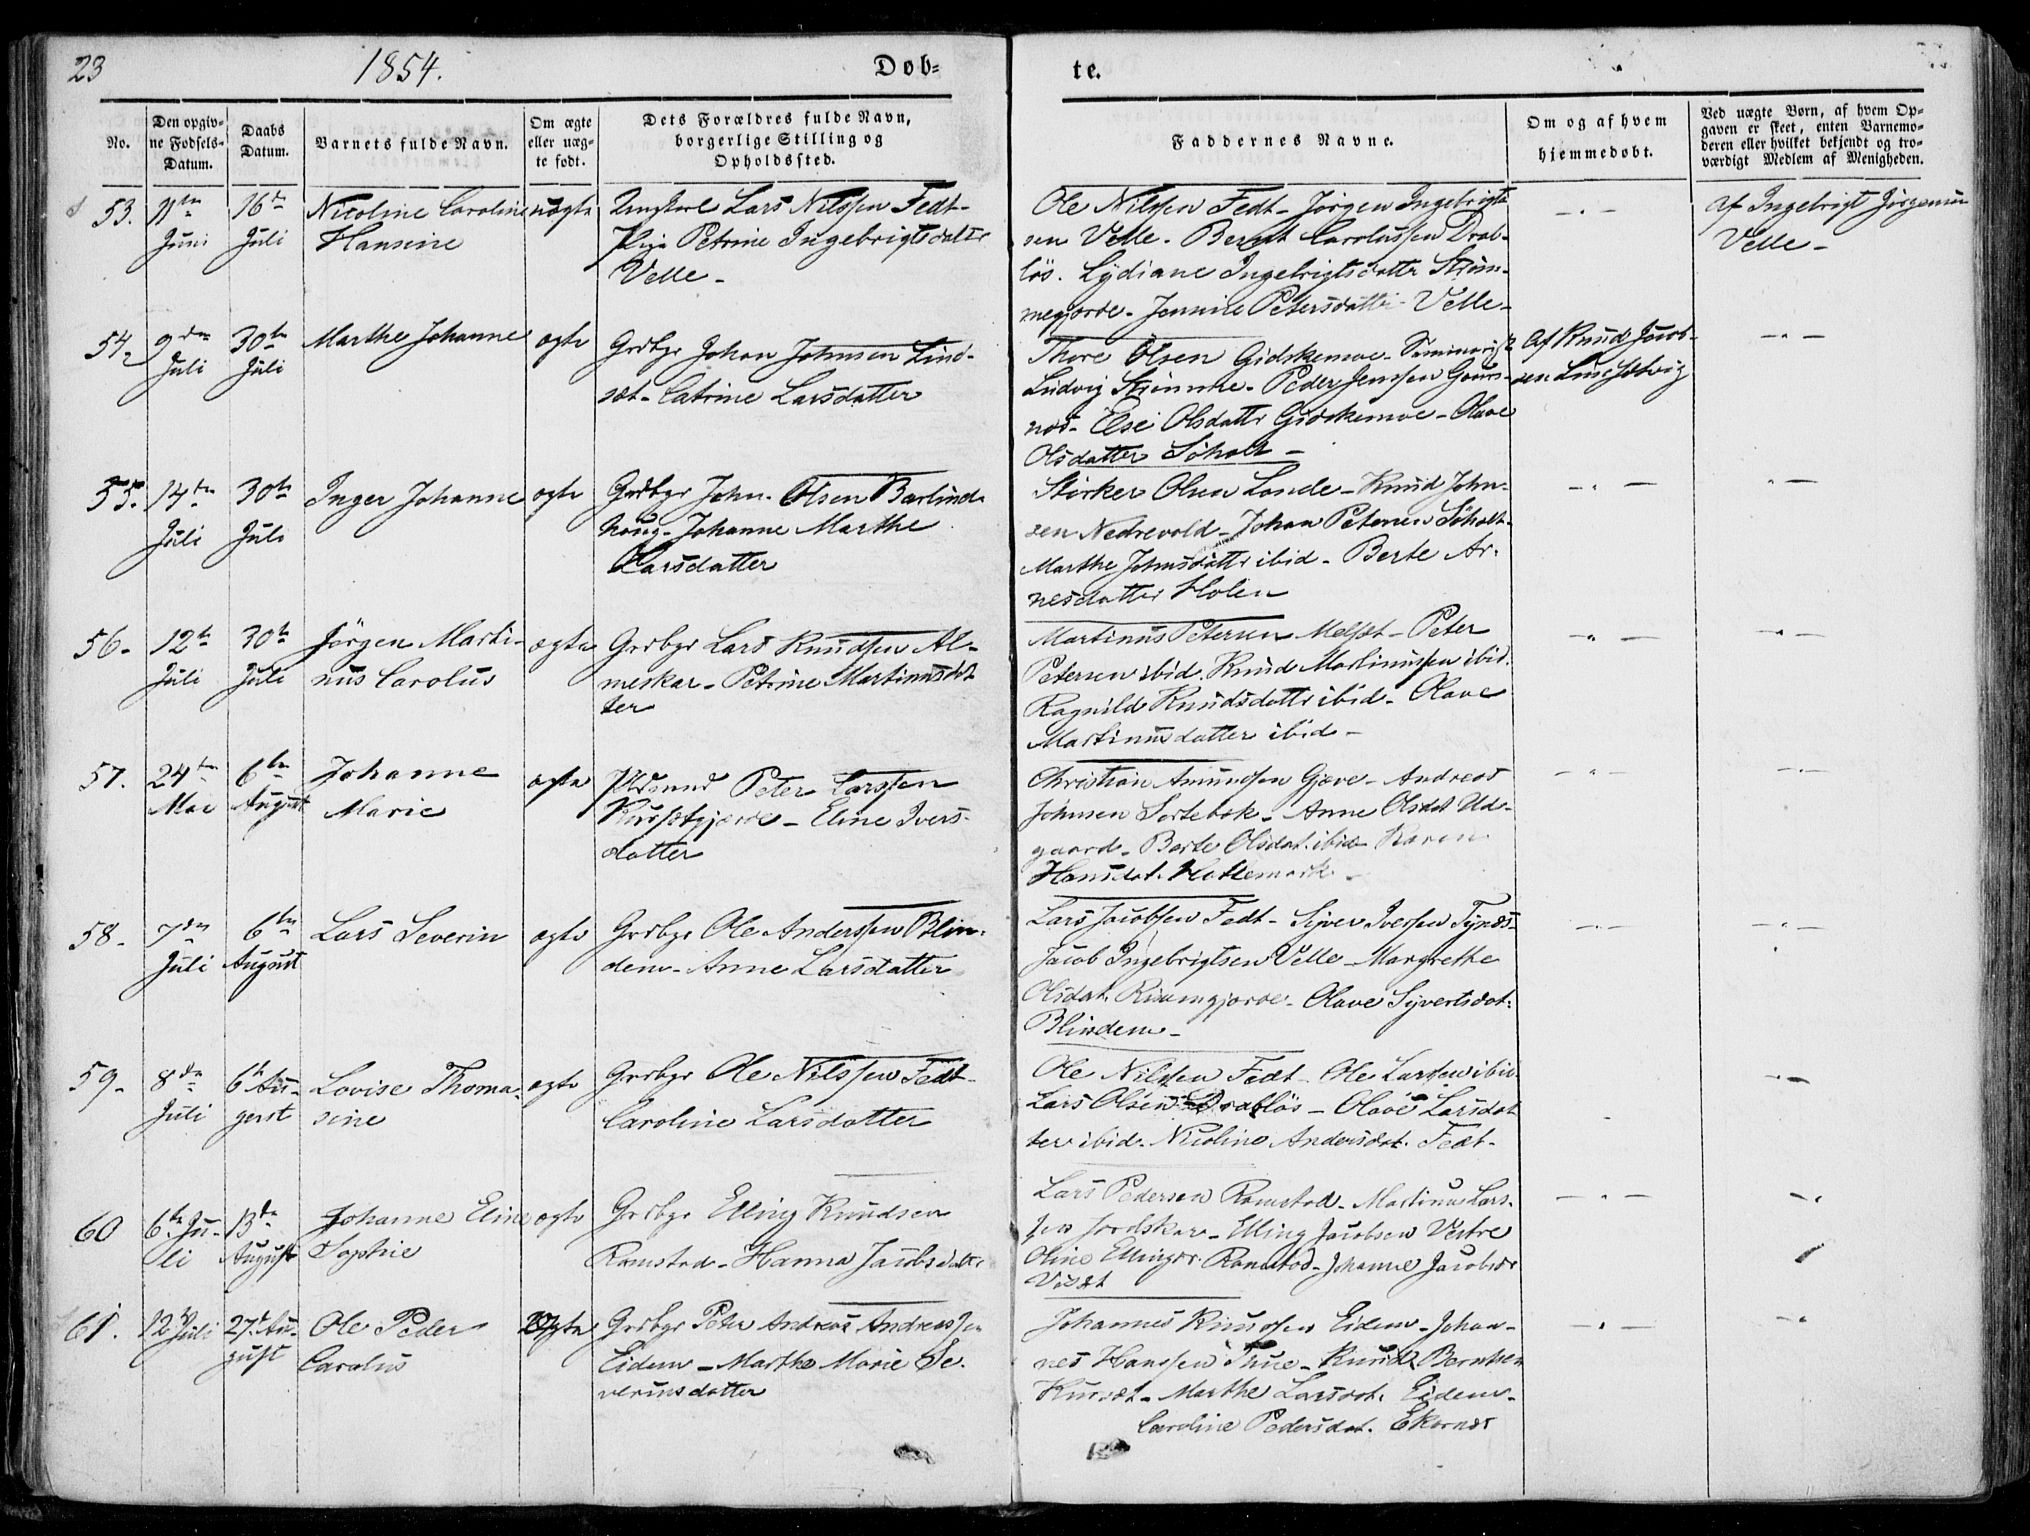 23
1854.
Døb=
te.
No.
Den opgiv=
ne Fødsels=
Datum.
Daabs
Datum.
Barnets fulde Navn.
Om ægte
eller uæg=
te født.
Dets Forældres fulde Navn,
borgerlige Stilling og
Opholdssted.
Faddernes Navne.
Om og af hvem
hjemmedøbt.
Ved uægte Børn, af hvem Op=
gaven er skeet, enten Barnemo=
deren eller hvilket bekjendt og tro=
værdigt Medlem af Menigheden.
53.
11te
Juni
16de
Juli
Nicoline Caroline
Hansine
uægte
Ungkarl Lars Nilssen Fedt-
Pige Petrine Ingebrigtsdatter
Velle -
Ole Nilssen Fedt - Jörgen Ingebrigt-
sen Velle. Bernt Carolussen Drab-
lös. Lydiane Ingebrigtsdatter Ström-
megjerde - Jennine Petersdatter Velle -
Af Ingebrigt Jörgensen
Velle -
54.
9de
Juli
30te
Juli
Marthe Johanne
ægte
Grdbgr Johan Johnsen Lind-
set - Catrine Larsdatter
Thore Olsen Gidskemoe - Seminarist
Ludvig Strömme - Peder Jenssen Gaurs-
nes - Else Olsdattr Gidskemoe - Olave
Olsdatter Söholt -
Af Knud Jacob-
sen
55.
14de
Juli
30te
Juli
Inger Johanne
ægte
Grdbgr John Olsen Barlind-
houg - Johanne Marthe
Larsdatter
Olsen Lande - Knud John-
sen Nedrevold - Johan Petersen Söholt -
Marthe Johnsdattr ibid - Berte Ar-
nesdatter Holen
56-
12te
Juli
30te
Juli
Jörgen Marti-
nus Carolus
ægte
Grdbgr Lars Knudssen Al-
meskar - Petrine Martinusdat
ter
Martinus Petersen Melset - Peter
Petersen ibid. Knud Martinussen ibid.
Ragnild Knudsdattr ibid - Olave
Martinusdatter ibid -
57.
24de
Mai
6te
August
Johanne
Marie
ægte
Pldsmd Peter Larssen
Kursetgjerde - Eline Ivers-
datter
Christian Amundsen Gjæve - Andreas
Johnsen Sortebek - Anne Olsdat Ud-
gaard - Berte Olsdat. ibid - Karen
Hansdat. Hattemark -
58-
7de
Juli
6te
August
Lars Severin
ægte
Grdbgr Ole Anderssen Blin-
dem - Anne Larsdatter
Lars Jacobsen Fedt - Siver Iversen Tynes -
Jacob Ingebrigtsen Velle - Margrethe
Olsdat. - Olave Syvertsdat.
Blindem -
59-
8de
Juli
6te Au-
gust
Lovise Thoma-
sine
ægte
Grdbgr Ole Nilssen Fedt -
Caroline Larsdatter
Ole Nilssen Fedt - Ole Larssen ibid -
Lars Olsen Drablös - Olave Larsdat
ter ibid - Nicoline Andersdat. Fedt -
60
6te Ju-
li
13de
August
Johanne Eline
Sophie
ægte
Grdbgr Elling Knudsen
Ramstad - Hanna Jacobsdattr
Lars Pedersen Ramstad - Martinus Lars-
sen Jordskar - Elling Jacobsen Vestre
Oline Ellingdr Ramstad - Johanne Jacobsdr
61.
12te Juli
27de Au-
gust
Ole Peder
Carolus
ægte
Grdbgr Peter Andreas Andreassen
Eidem - Marthe Marie Se-
verinsdatter
Johannes Knudsen Eidem - Johan-
nes Hanssen Thue - Knud Berntsen
Kurset - Marthe Larsdat. Eidem -
Caroline Pedersdat. Ekornes